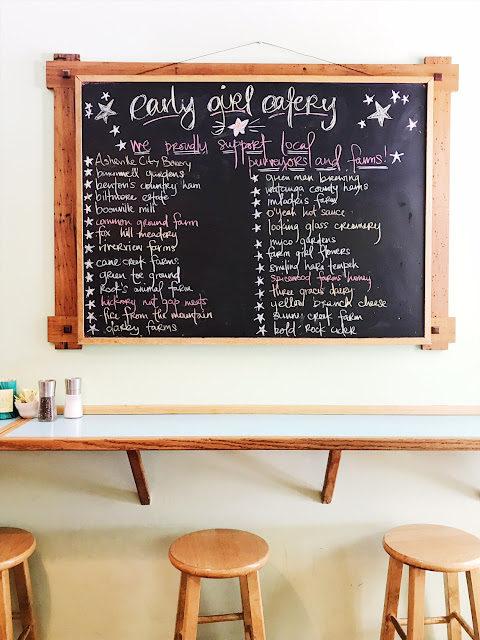 early girl eatery
we proudly support local
purveyors and farms!
Asheville City Bakery
gardens
benton's country ham
biltmore estate
boonville mill
common ground farm
fox hill meadery
riverview farms
cane creek farms
green toe ground
rock's animal farm
hickory nut gap meats
fire from the mountain
darby farms
green man brewing
watauga county hams
farm
o'yeah hot sauce
looking glass creamery
myco gardens
farm girl flowers
smiling hara tempeh
spicewood farms honey
three graces dairy
yellow branch cheese
sunny creek farm
bold rock cider